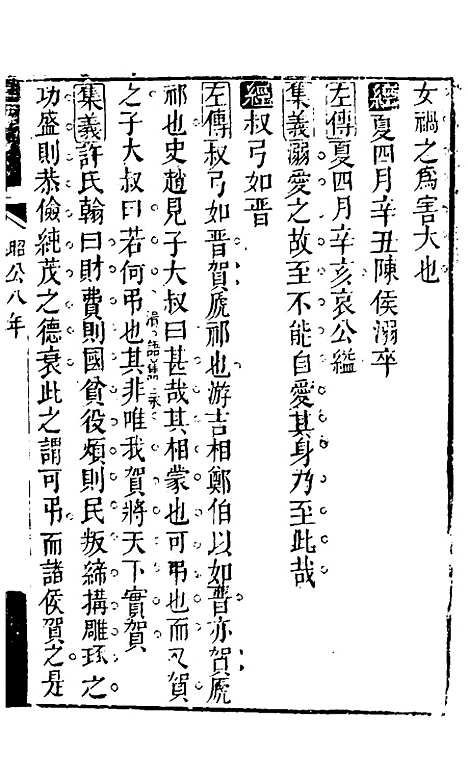 女禍之為害大也
經夏四月辛丑陳侯溺卒
左傳夏四月辛亥哀公縊
集義溺愛之故至不能自愛其身乃至此哉
經叔弓如晉
左傳叔弓如晉賀虒祁也游吉相鄭伯以如晉亦賀虒
祁也史趙見子大叔曰甚哉其相蒙也可弔也而又賀
之子大叔曰若何弔也其非唯我賀將天下實賀
集義許氏翰曰財費則國貧役煩則民叛締搆雕琢之
功盛則恭儉純茂之德衰此之謂可弔而諸侯賀之是
昭公八年